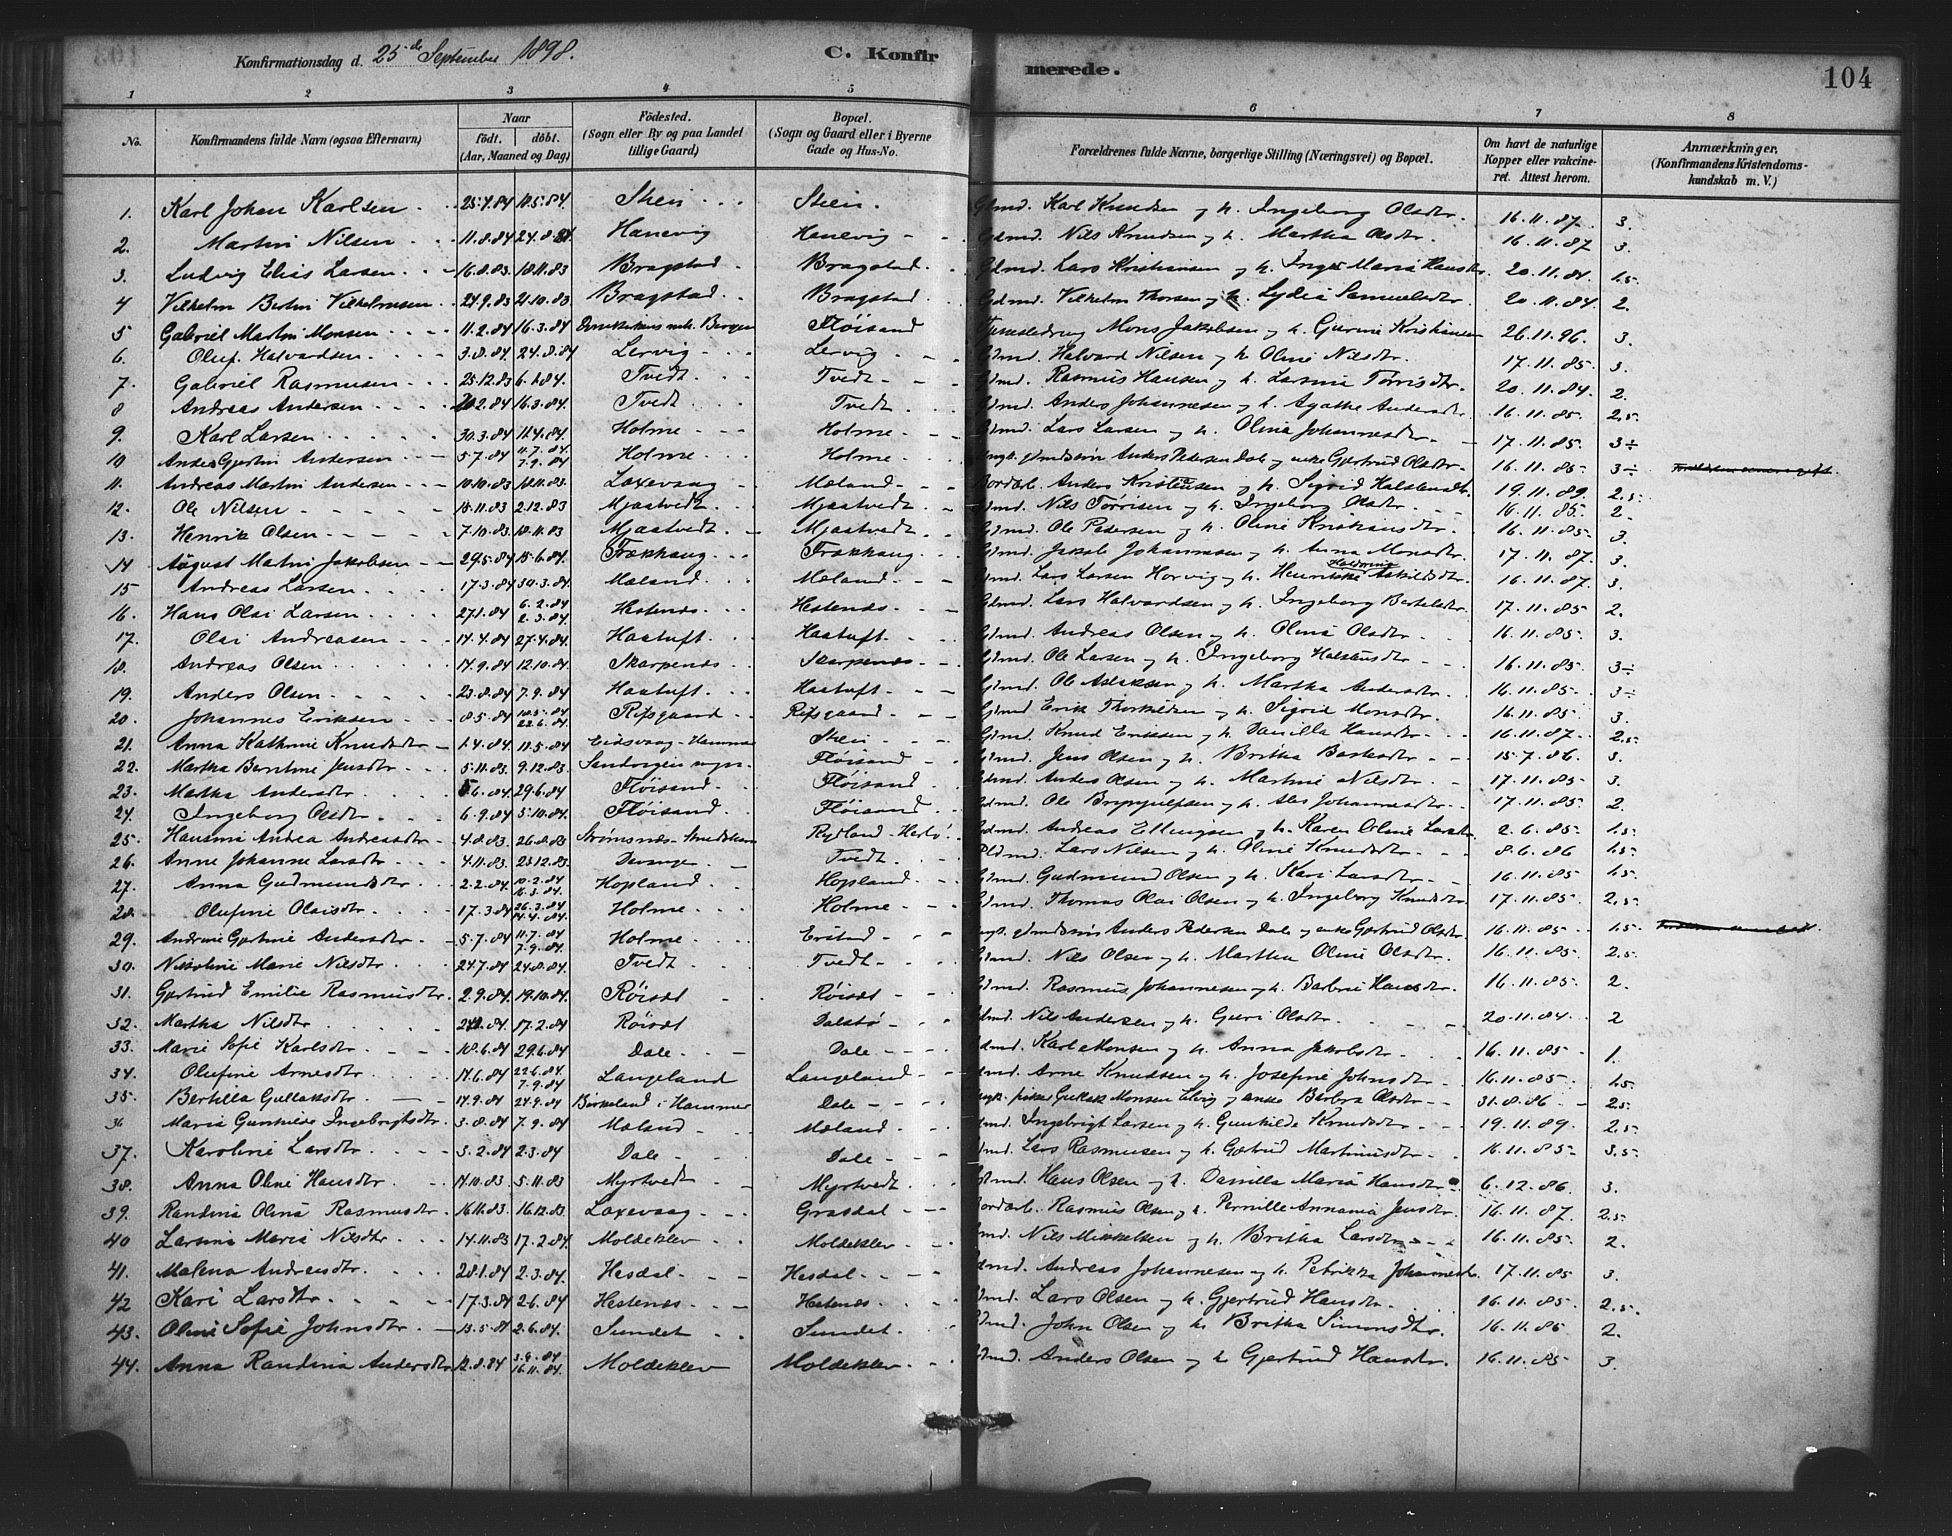 Konfirmationsdag d. 25de September 1898. C. Konfirmerede. 104
1 2 3 4 5 6 7 8
No. Konfirmandens fulde Navn (ogsaa Efternavn) Naar födt. döbt. (Aar, Maaned og Dag) Födested. (Sogn eller By og paa Landet tillige Gaard) Bopæl. (Sogn og Gaard eller i Byerne Gade og Hus-No. Forældrenes fulde Navne, borgerlige Stilling (Næringsvei) og Bopæl. Om havt de naturlige Kopper eller vakcineret. Attest herom. Anmærkninger, (Konfirmandens Kristendomskundskab m. V.)
1. Karl Johan Karlsen 25.4.84 Gdmd. Karl Knudsen og h. Ingeborg Olsdtr. 16.11.87. 3.
2. Martin Nilsen 11.8.84 24.8.84 Hanevig Hanevig Gdmd. Nils Knudsen og h. Martha Olsdtr. 16.11.87 3.
3. Ludvig Elias Larsen 16.8.83. 18.11.83 Bragstad Bragstad. Gdmd. Lars Kristiansen og h. Inger Maria Hansdtr 20.11.84. 1.5
4 Vilhelm Bertin Vilhelmsen 24.9.83 21.10.83 Bragstad Bragstad Gdmd. Vilhelm Thorsen og h. Lydia Samuelsdtr 20.11.84. 2.
5 Gabriel Martin Monsen 11.2.84 16.3.84 Bergen Flöisand Mons Jakobsen og h. Gurine Kristiansen 26.11.96. 3.
6. Oluf Halvardsen 3.8.84. 24.8.84 Lervig Lervig Gdmd. Halvard Nilsen og h. Oline Nilsdtr. 17.11.85. 3.
7. Gabriel Rasmusen 25.12.83 6.1.84. Tvedt Tvedt Gdmd. Rasmus Hansen og h. Larsina Tørrisdtr. 20.11.84. 2.
8 Andreas Andersen 16.3.84. Tvedt Tvedt Gdmd. Anders Johannesen og h. Agathe Andersdtr 16.11.85. 2.5
9. Karl Larsen 30.3.84 Holme Holme Gdmd. Lars Larsen og h. Olina Johannesdtr 17.11.85. 3÷
10 Anders Gjertin Andersen 5.7.84 11.7.84. 7.9.84 Holme Holme Anders Pedersen Dale og enke Gjertrud Olsdtr. 16.11.85 3÷
11. Andreas Martin Andersen 10.10.83 18.11.83. Laxevaag Mæland Anders Kristensen og h. Sigrid Halstensdtr 19.11.89. 2.5
12. Ole Nilsen 2.12.83 Mjaatvedt Mjaatvedt Gdmd. Nils Tørrisen og h. Ingeborg Olsdtr 16.11.85. 2.
13. Henrik Olsen 7.10.83 18.11.83 Mjaatvedt Mjaatvedt Gdmd. Ole Pedersen og h. Oline Kristiansdtr 16.11.85. 3.
14 August Martin Jakobsen 29.5.84 15.6.84. Trækhaug Trækhaug Gdmd. Jakob Johannesen og h. Anna Monsdtr 17.11.87. 3.
15 Andreas Larsen 17.3.84 30.3.84. Mæland Mæland Gdmd. Lars Larsen Horvig og h. Henrikke Askildsdtr. 16.11.87. 3.
16. Hans Olai Larsen 27.1.84 6.2.84 2.3.84. Hestenæs Hestenæs Gdmd. Lars Halvardsen og h. Ingeborg Bertelsdtr 17.11.85 2.
17. Olai Andreasen 14.4.84 27.4.84. Haatuft Haatuft Gdmd. Andreas Olsen og h. Olina Olsdtr 16.11.85. 3.
18. Andreas Olsen 14.9.84 12.10.84. Skarpenæs Skarpenæs Gdmd. Ole Larsen og h. Ingeborg Halstensdtr 16.11.85. 3÷
19. Anders Olsen 23.8.84 7.9.84 Haatuft Haatuft Gdmd. Ole Aslaksen og h. Martha Andersdtr 16.11.85. 3÷
20. Johannes Eriksen 8.5.84 18.5.84 22.6.84. Refsgaard Refsgaard Gdmd. Erik Thorkildsen og h. Sigrid Monsdtr 16.11.85. 3.
21. Anna Kathrine Knudsdtr 1.4.84. 11.5.84 Eidsvaag - Hammer Gdmd. Knud Eriksen og h. Danilla Hansdtr 16.11.87. 2.5
22. Martha Berntine Jensdtr 5.11.83. 9.12.83. Flöisand Gdmd. Jens Olsen og h. Britha 15.7.86. 3.
23. Martha Andersdtr 29.6.84 Flöisand Flöisand Gdmd. Anders Olsen og h. Martine Nilsdtr 17.11.85 3.
24. Ingeborg Olsdtr 6.9.84 5.10.84. Flöisand Flöisand Gdmd. Ole Brynjulfsen og h. Johannesdtr 17.11.85. 2.
25. Hansine Andrea Andreasdtr 4.8.83. 26.8.83 Rydland - Herlö Gdmd. Andreas Ellingsen og h. Karen Oline Larsdtr 2.6.85 1.5
26. Anne Johanne Larsdtr 4.11.83. Tvedt Lars Nilsen og h. Oline Knudsdtr 8.6.86 1.5
27. Anna Gudmundsdtr 2.2.84. 10.2.84 16.3.84. Hopland Hopland Gdmd. Gudmund Olsen og h. Kari Larsdtr 16.11.85 1.5
28. Olufine Olaisdtr 17.3.84 26.3.84 14.4.84. Holme Holme Gdmd. Thomas Olai Olsen og h. Ingeborg Knudsdtr 17.11.85 2.5
29. Andrine Gjertine Andersdtr 5.7.84 11.7.84 7.9.84 Holme Erstad Anders Pedersen Dale og enke Gjertrud Olsdtr 16.11.85 1.5
30. Nikoline Marie Nilsdtr 24.7.84 24.8.84. Tvedt Tvedt Gdmd. Nils Olsen og h. Martha Oline Olsdtr 16.11.85 2.5
31. Gjertrud Emilie Rasmusdtr 2.9.84 19.10.84. Röisæt Röisæt Gdmd. Rasmus Johannesen og h. Barbru Hansdtr. 16.11.85. 2.
32. Martha Nilsdtr 17.2.84 Röisæt Dalstø Gdmd. Nils Andersen og h. Guri Olsdtr 20.11.84. 2
33. Marie Sofie Karlsdtr 18.6.84 29.6.84 Dale Dale Gdmd. Karl Monsen og h. Anna Jakobsdtr 16.11.85 1.
34. Olufine Arnesdtr 14.6.84 22.6.84 7.9.84 Langeland Langeland Gdmd. Arne Knudsen og h. Josefine Johnsdtr 16.11.85 1.5
35. Bertilla Gullaksdtr 14.9.84 24.9.84 Birkeland i Hammer Dale Gullak Monsen Elvig og enke Barbra Olsdtr 31.8.86 2.5
36 Maria Gunhilde Ingebrigtsdtr. 3.8.84 7.9.84 Mæland Mæland Gdmd. Ingebrigt Larsen og h. Gunhilde Knudsdtr 19.11.89. 2.5
37. Karoline Larsdtr 3.2.84 2.3.84 Dale Dale Gdmd. Lars Rasmusen og h. Gjertrud Martinusdtr 16.11.85 3.5
38. Anna Oline Hansdtr. 14.10.83 5.11.83 Myrtvedt Myrtvedt Gdmd. Hans Olsen og h. Danilla Maria Hansdtr 6.12.86. 3.
39. Randina Olina Rasmusdtr. 16.11.83. 16.12.83. Laxevaag Grasdal Rasmus Olsen og h. Pernille Annania Jensdtr. 16.11.87. 2.5
40 Larsina Maria Nilsdtr 14.11.83 17.2.84. Moldeklev Moldeklev Gdmd. Nils Mikkelsen og h. Britha Larsdtr 16.11.85 2.
41. Malena Andreasdtr 28.1.84 2.3.84. Hesdal Hesdal Gdmd. Andreas Johannesen og h. Petrikka Johannesdtr 17.11.85 3.
42 Kari Larsdtr 17.3.84 2.6.84 Hestenæs Hestenæs Gdmd. Lars Olsen og h. Gjertrud Hansdtr. 16.11.85. 2.5
43. Oline Sofie Johnsdtr 2.6.84. Sundet Sundet. Gdmd. John Olsen og h. Britha Simonsdtr. 16.11.85 2.
44. Anna Randina Andersdtr 12.8.84 3.9.84 16.11.84. Moldeklev Moldeklev Gdmd. Anders Olsen og h. Gjertrud Hansdtr. 16.11.85 3.